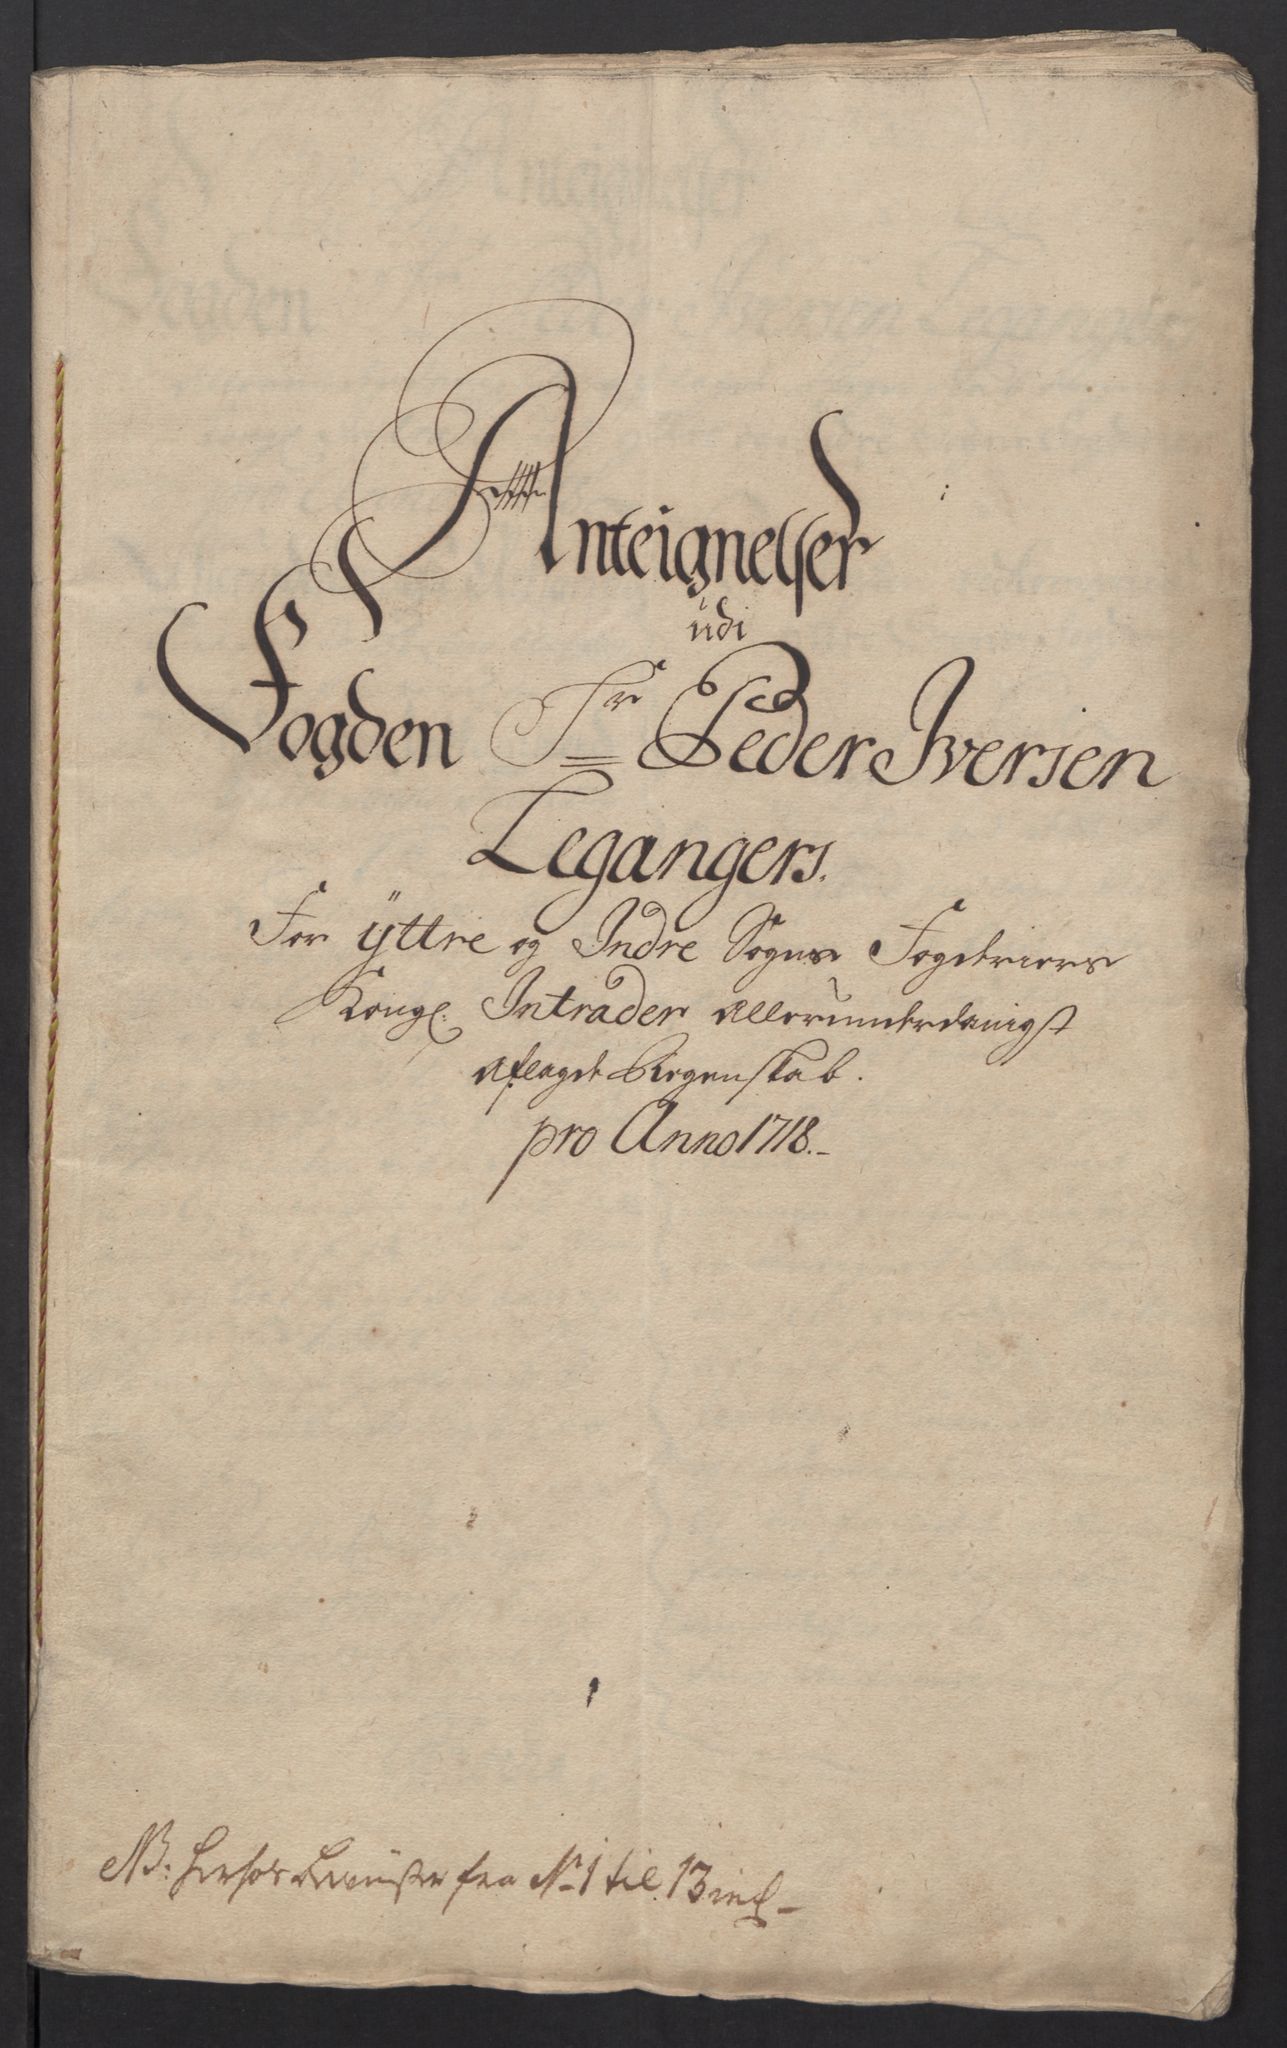 Anteignelser
udi
Fogden Sr Peder Iversen
Legangers.
For Yttre og Indre Sogns Fogderiers
Kongl: Intrader allerunderdanigst
aflagde Regenskab.
pro Anno 1718.-
NB: herhos Beviiser fra No 1 til 13 incl-